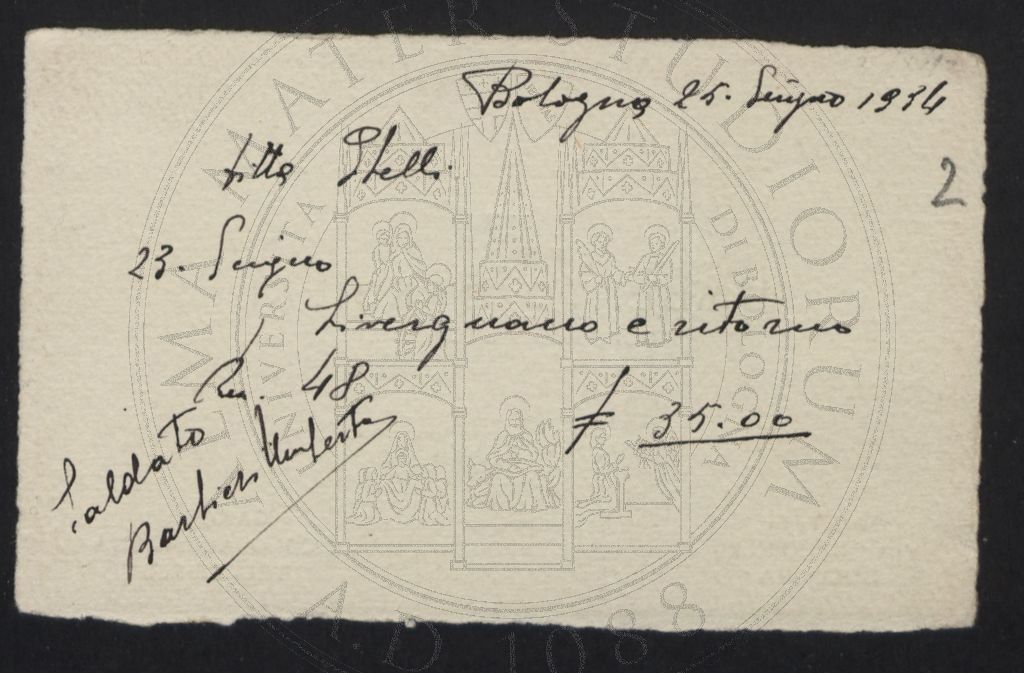 Bologna 25. Giugno 1934
2
Ditta Stelli
23. Giugno
Livergnano e ritorno
Km. 48
£ 35.00
Saldato
Barbieri Umberto
ALMA MATER STUDIORUM
UNIVERSITA DI BOLOGNA
A.D. 1088